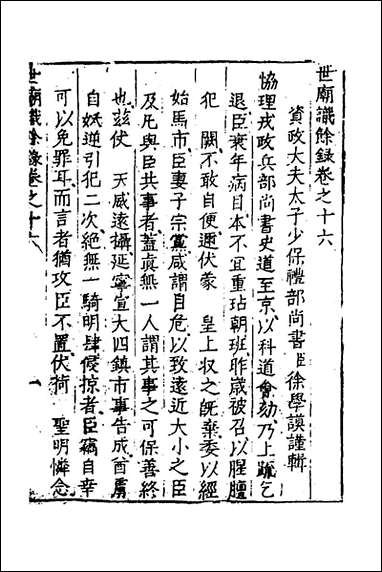 世廟識餘録卷之十六
資政大夫太子少保禮部尚書臣徐學謨謹輯
協理戎政兵部尚書史道至京以科道會劾乃上疏乞
退臣衰年病目本不宜重玷朝班昨歲被召以腥膻
犯 闕不敢自便逋伏蒙 皇上収之旣棄委以經
始馬市臣妻子宗黨咸謂自危以致遠近大小之臣
及凡與臣共事者蓋眞無一人謂其事之可保善終
也玆伏 天威遠攝延寧宣大四鎮市事告成酋虜
自妖逆引犯二次絶無一騎明肆侵掠者臣竊自幸
可以免罪耳而言者猶攻臣不置伏荷 聖明憐念
世廟識餘録卷之十六
一